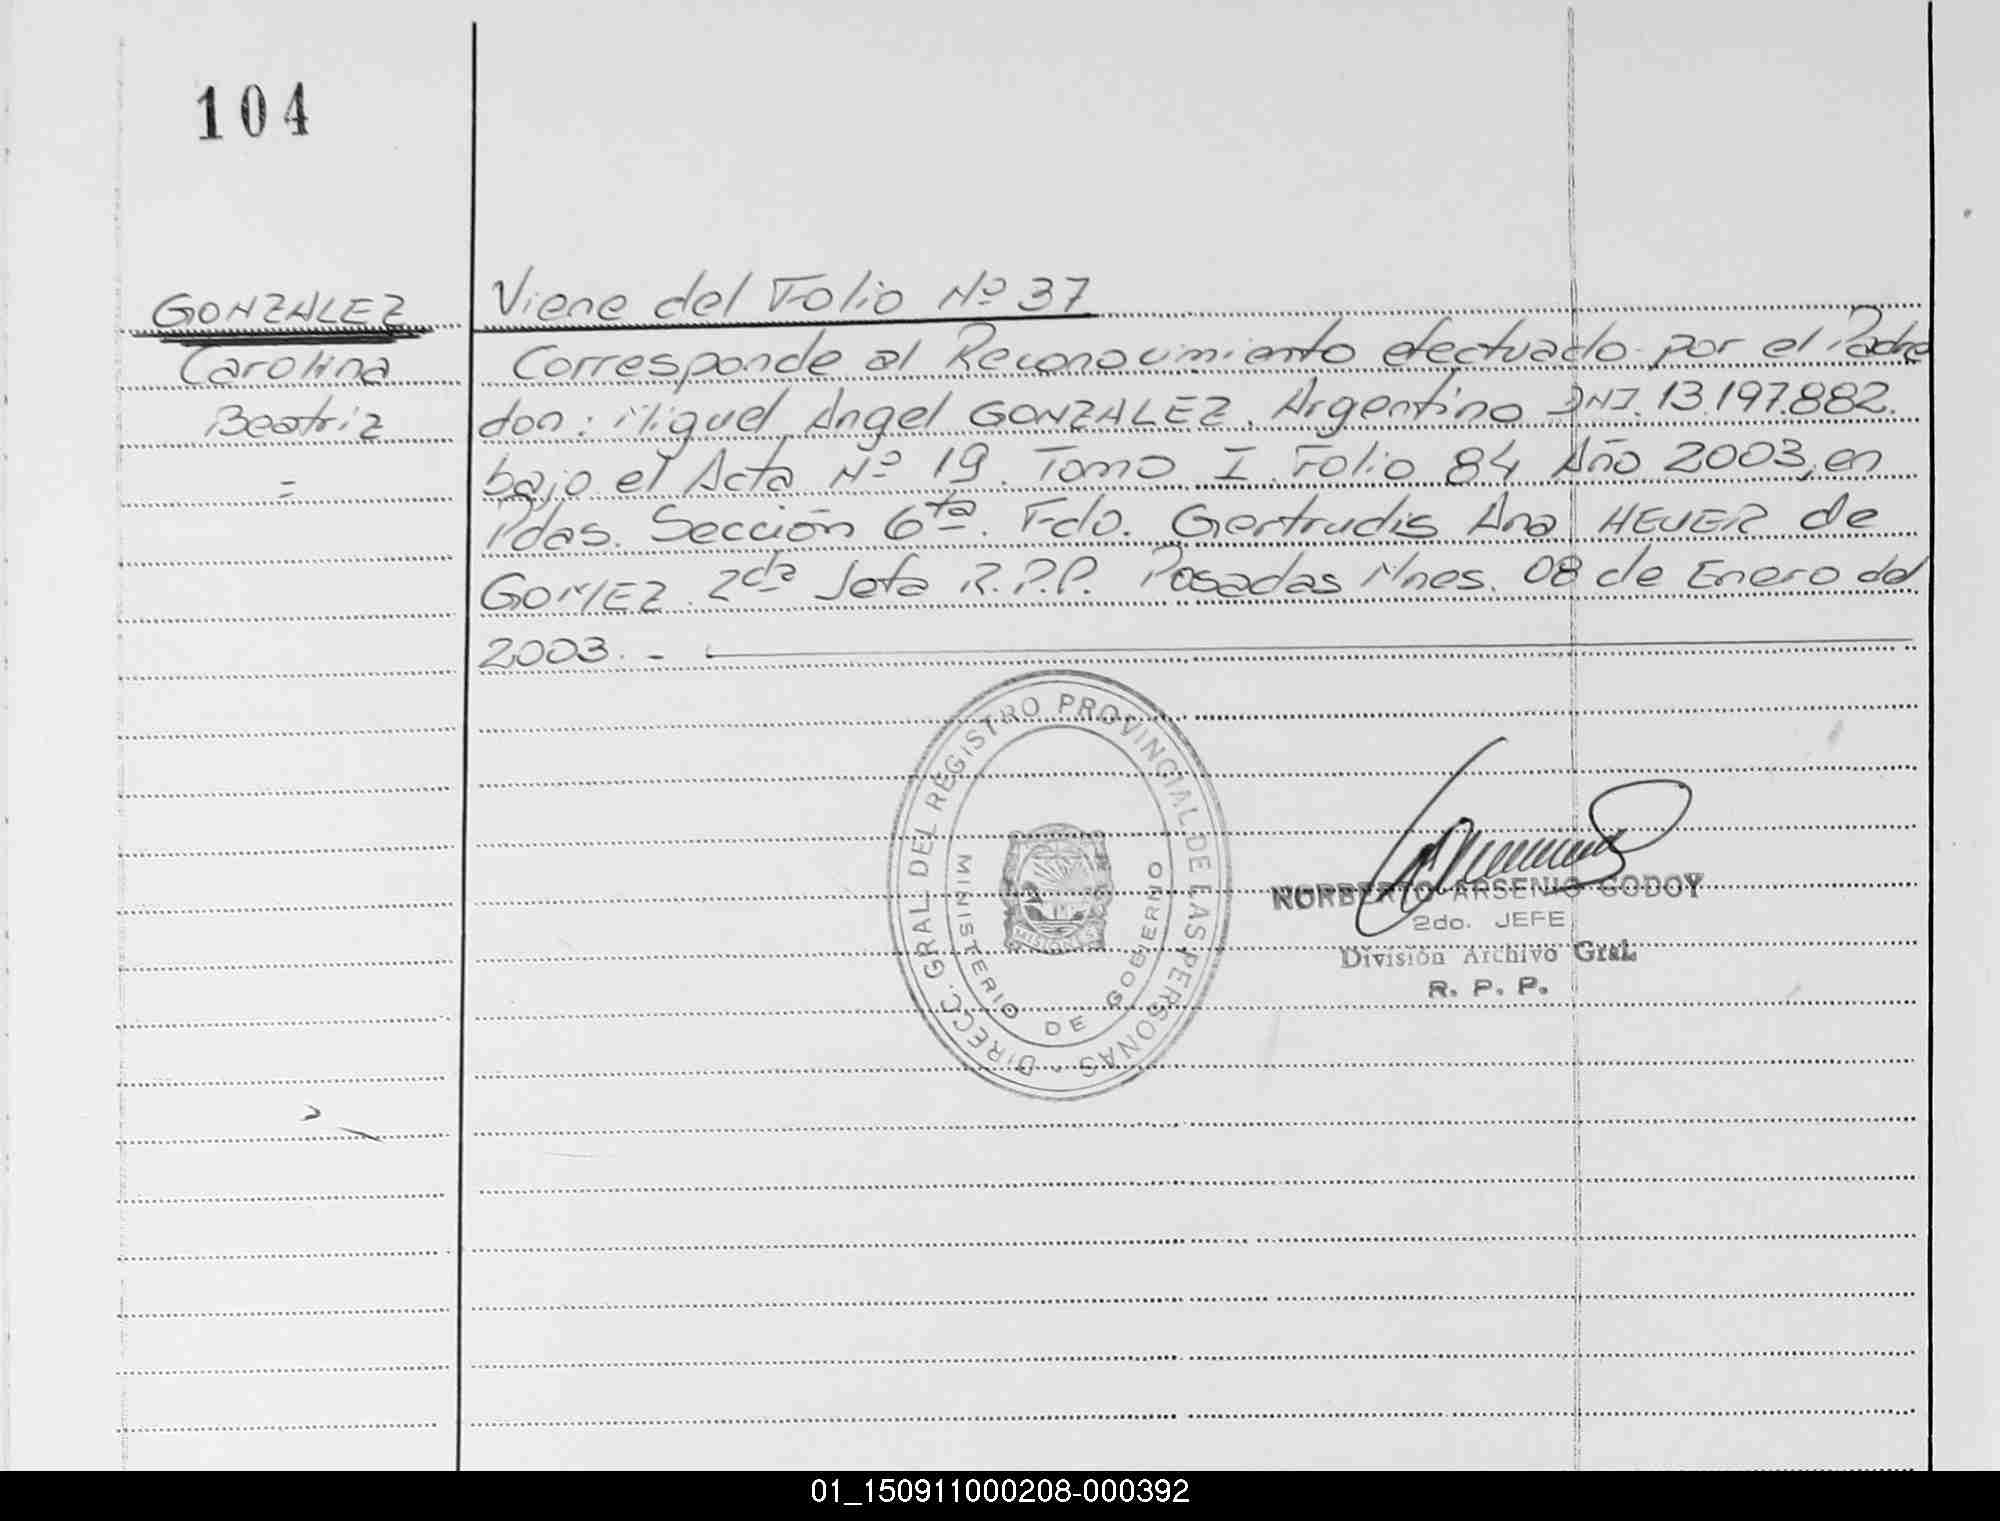 104
GONZALEZ
Carolina
Beatriz
=
Viene del Folio Nº 37
Corresponde al Reconocimiento efectuado por el Padre
don: Miguel Angel GONZALEZ. Argentino DNI. 13.197.882.
bajo el Acta Nº 19. Tomo I. Folio 84 Año 2003, en
Pdas. Sección 6ta. Fdo. Gertrudis Ana HEUER de
GOMEZ. 2da Jefa R.P.P. Posadas Mnes. 08 de Enero del
2003. -
DIRECC. GRAL DEL REGISTRO PROVINCIAL DE LAS PERSONAS -
MINISTERIO DE GOBIERNO
MISIONES
NORBERTO ARSENIO GODOY
2do. JEFE
División Archivo Gral.
R. P. P.
01_150911000208-000392